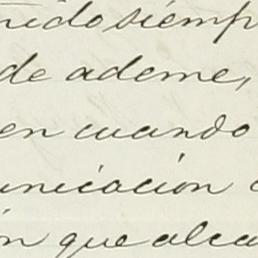 nido siemp
de ademe,
en cuando
unicación
ón que alca